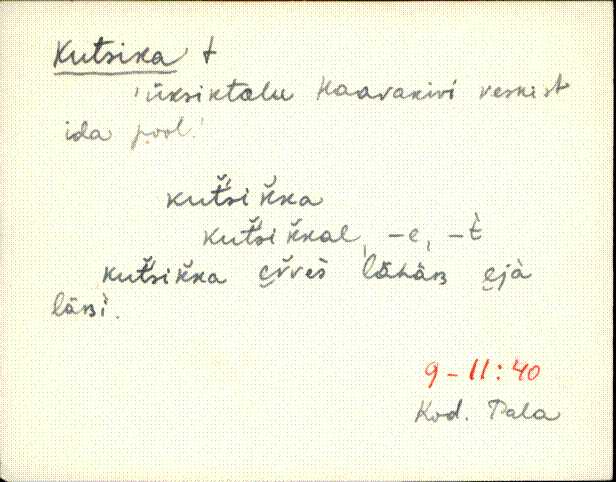 Kutsika t
'üksiktalu Haavakivi veskist
ida pool.'
kuť̆si k̆ka
kuť̆si k̆kal, -e, -t̀
kuť̆sik̆ka e̮v̆ves̀ lähäʙ e̮jà
läʙì.
9-11:40
Kod. Pala